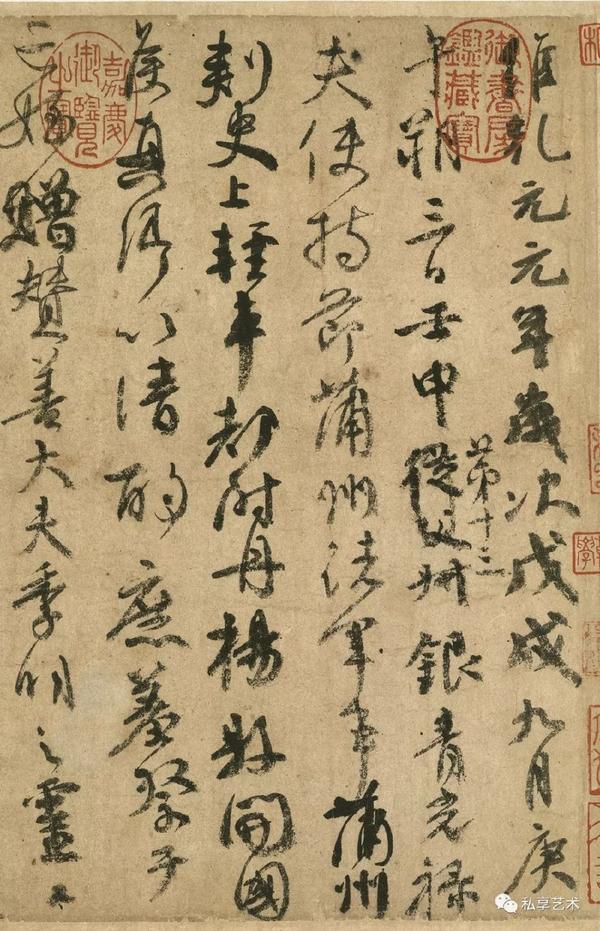 維乾元元年歲次戊戌九月庚
午朔三日壬申第十三從父州銀青光祿
夫使持節蒲州諸軍事蒲州
刺史上輕車都尉丹楊縣開國
侯真卿以清酌庶羞祭于
亡姪贈贊善大夫季明之靈曰
御書房鑑藏寶
嘉慶御覽之寶
私享艺术